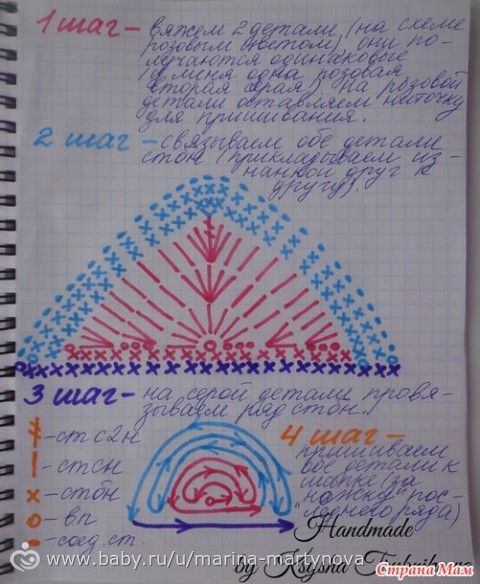 1 шаг - вяжем 2 детали (на схеме
розовым цветом), они по-
лучаются одинаковые
(у меня одна розовая
вторая серая). На розовой
детали оставляем ниточку
для пришивания.
2 шаг - связываем обе детали
стбн (прикладываем из-
нанкой друг к
другу).
3 шаг - на серой детали провя-
зываем ряд стбн.
- ст с2н
- стсн
- стбн
- вп
- соед. ст.
4 шаг -
пришиваем
обе детали к
шапке (за
"ножку" пос-
леднего ряда)
Handmade
by Ksyusha
www.baby.ru/u/marina-martynova
Страна Мам